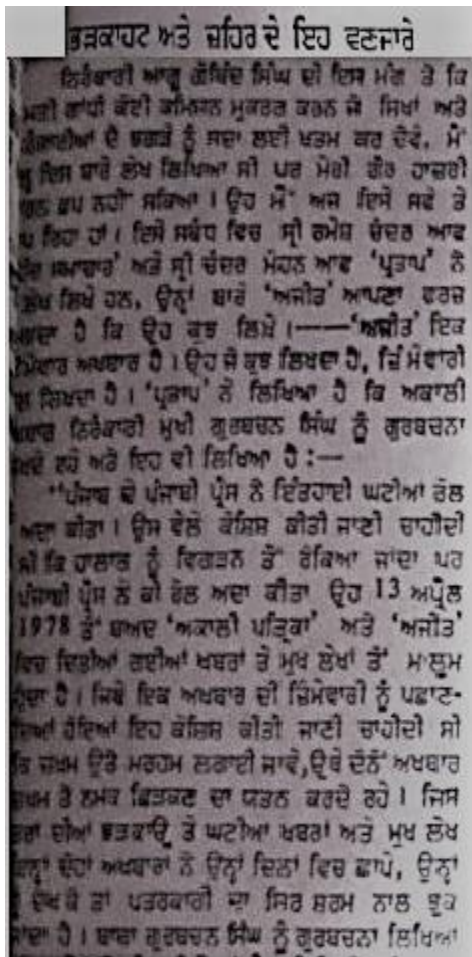 ਭੜਕਾਹਟ ਅਤੇ ਜ਼ਹਿਰ ਦੇ ਇਹ ਵਣਜਾਰੇ
ਨਿਰੰਕਾਰੀ ਆਗੂ ਗੋਬਿੰਦ ਸਿੰਘ ਦੀ ਇਸ ਮੰਗ ਤੇ ਕਿ
ਗਾਂਧੀ ਕੋਈ ਕਮਿਸ਼ਨ ਮੁਕਰਰ ਕਰਨ ਜੋ ਸਿਖਾਂ ਅਤੇ
ਦੇ ਝਗੜੇ ਨੂੰ ਸਦਾ ਲਈ ਖਤਮ ਕਰ ਦੇਵੇ, ਮੈਂ
ਇਸ ਬਾਰੇ ਲੇਖ ਲਿਖਿਆ ਸੀ ਪਰ ਮੇਰੀ ਗੈਰ ਹਾਜ਼ਰੀ
ਛਪ ਨਹੀਂ ਸਕਿਆ । ਉਹ ਮੈਂ ਅਜ ਇਸੇ ਸਫੇ ਤੇ
ਰਿਹਾ ਹਾਂ । ਇਸੇ ਸਬੰਧ ਵਿਚ ਸ੍ਰੀ ਰਮੇਸ਼ ਚੰਦਰ ਆਫ
ਸਮਾਚਾਰ' ਅਤੇ ਸ੍ਰੀ ਚੰਦਰ ਮੋਹਨ ਆਫ 'ਪ੍ਰਤਾਪ' ਨੇ
ਲਿਖੇ ਹਨ, ਉਨ੍ਹਾਂ ਬਾਰੇ 'ਅਜੀਤ' ਆਪਣਾ ਫਰਜ਼
ਹੈ ਕਿ ਉਹ ਕੁਝ ਲਿਖੇ ।——'ਅਜੀਤ' ਇਕ
ਅਖਬਾਰ ਹੈ । ਉਹ ਜੋ ਕੁਝ ਲਿਖਦਾ ਹੈ, ਜ਼ਿੰਮੇਵਾਰੀ
ਲਿਖਦਾ ਹੈ । 'ਪ੍ਰਤਾਪ' ਨੇ ਲਿਖਿਆ ਹੈ ਕਿ ਅਕਾਲੀ
ਨਿਰੰਕਾਰੀ ਮੁਖੀ ਗੁਰਬਚਨ ਸਿੰਘ ਨੂੰ ਗੁਰਬਚਨਾ
ਰਹੇ ਅਤੇ ਇਹ ਵੀ ਲਿਖਿਆ ਹੈ :—
"ਪੰਜਾਬ ਦੇ ਪੰਜਾਬੀ ਪ੍ਰੈਸ ਨੇ ਇੰਤਹਾਈ ਘਟੀਆ ਰੋਲ
ਅਦਾ ਕੀਤਾ । ਉਸ ਵੇਲੇ ਕੋਸ਼ਿਸ਼ ਕੀਤੀ ਜਾਣੀ ਚਾਹੀਦੀ
ਸੀ ਕਿ ਹਾਲਾਤ ਨੂੰ ਵਿਗੜਨ ਤੋਂ ਰੋਕਿਆ ਜਾਂਦਾ ਪਰ
ਪੰਜਾਬੀ ਪ੍ਰੈਸ ਨੇ ਕੀ ਰੋਲ ਅਦਾ ਕੀਤਾ ਉਹ 13 ਅਪ੍ਰੈਲ
1978 ਤੋਂ ਬਾਅਦ 'ਅਕਾਲੀ ਪਤ੍ਰਿਕਾ' ਅਤੇ 'ਅਜੀਤ'
ਵਿਚ ਦਿਤੀਆਂ ਗਈਆਂ ਖਬਰਾਂ ਤੇ ਮੁਖ ਲੇਖਾਂ ਤੋਂ ਮਾਲੂਮ
ਹੁੰਦਾ ਹੈ । ਜਿਥੇ ਇਕ ਅਖਬਾਰ ਦੀ ਜ਼ਿੰਮੇਵਾਰੀ ਨੂੰ ਪਛਾਣ-
ਦਿਆਂ ਹੋਇਆਂ ਇਹ ਕੋਸ਼ਿਸ਼ ਕੀਤੀ ਜਾਣੀ ਚਾਹੀਦੀ ਸੀ
ਕਿ ਜ਼ਖਮ ਉਤੇ ਮਰਹਮ ਲਗਾਈ ਜਾਵੇ, ਉਥੇ ਦੋਨੋਂ ਅਖਬਾਰ
ਜ਼ਖਮ ਤੇ ਨਮਕ ਛਿੜਕਣ ਦਾ ਯਤਨ ਕਰਦੇ ਰਹੇ । ਜਿਸ
ਦੀਆਂ ਭੜਕਾਊ ਤੇ ਘਟੀਆ ਖਬਰਾਂ ਅਤੇ ਮੁਖ ਲੇਖ
ਦੋਹਾਂ ਅਖਬਾਰਾਂ ਨੇ ਉਨ੍ਹਾਂ ਦਿਨਾਂ ਵਿਚ ਛਾਪੇ, ਉਨ੍ਹਾਂ
ਦੇਖ ਕੇ ਤਾਂ ਪਤਰਕਾਰੀ ਦਾ ਸਿਰ ਸ਼ਰਮ ਨਾਲ ਝੁਕ
ਜਾਂਦਾ ਹੈ । ਬਾਬਾ ਗੁਰਬਚਨ ਸਿੰਘ ਨੂੰ ਗੁਰਬਚਨਾ ਲਿਖਿਆ